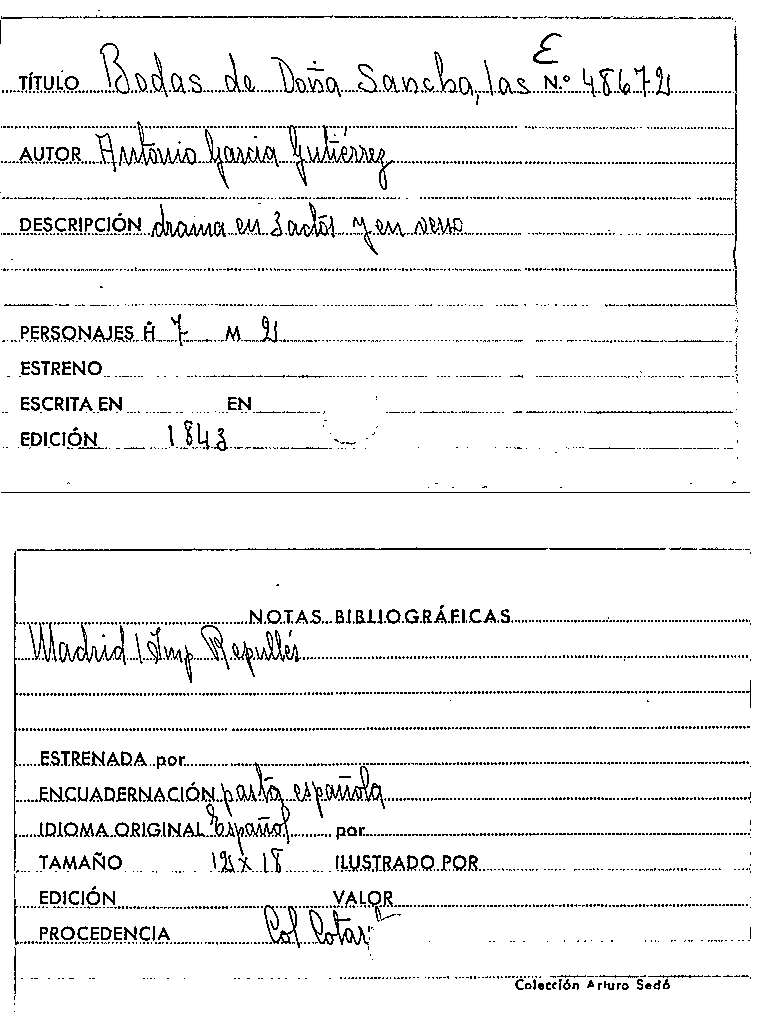 E
TÍTULO Bodas de Doña Sancha, las N.º 48672
AUTOR Antonio García Gutiérrez
DESCRIPCIÓN drama en 3 actos y en verso
PERSONAJES H 7 M 2
ESTRENO
ESCRITA EN EN
EDICIÓN 1843
NOTAS BIBLIOGRÁFICAS
Madrid / Imp Repullés
ESTRENADA por
ENCUADERNACIÓN pasta española
IDIOMA ORIGINAL Español por
TAMAÑO 12 x 18 ILUSTRADO POR
EDICIÓN VALOR
PROCEDENCIA Col Cotar
Colección Arturo Sedó